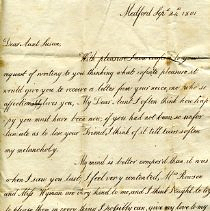 Medford Sept 24th 1801
Dear Aunt Susan,
With pleasure I now comply to your
request of writing to you thinking what infinite pleasure, it
would give you to receive a letter from your niece, one who so
affectionately loves you, My Dear Aunt I often think how hap
py you must have been now; if you had not been so unfor
tunate as to lose your Friend, I think of it till tears soften
my melancholy.
My mind is better composed than it was
when I saw you last, I feel very contented, Mrs Rowson
and Miss Wyman are very kind to me, and I think I ought to try
to please them in every thing I possibly can, give my love to my